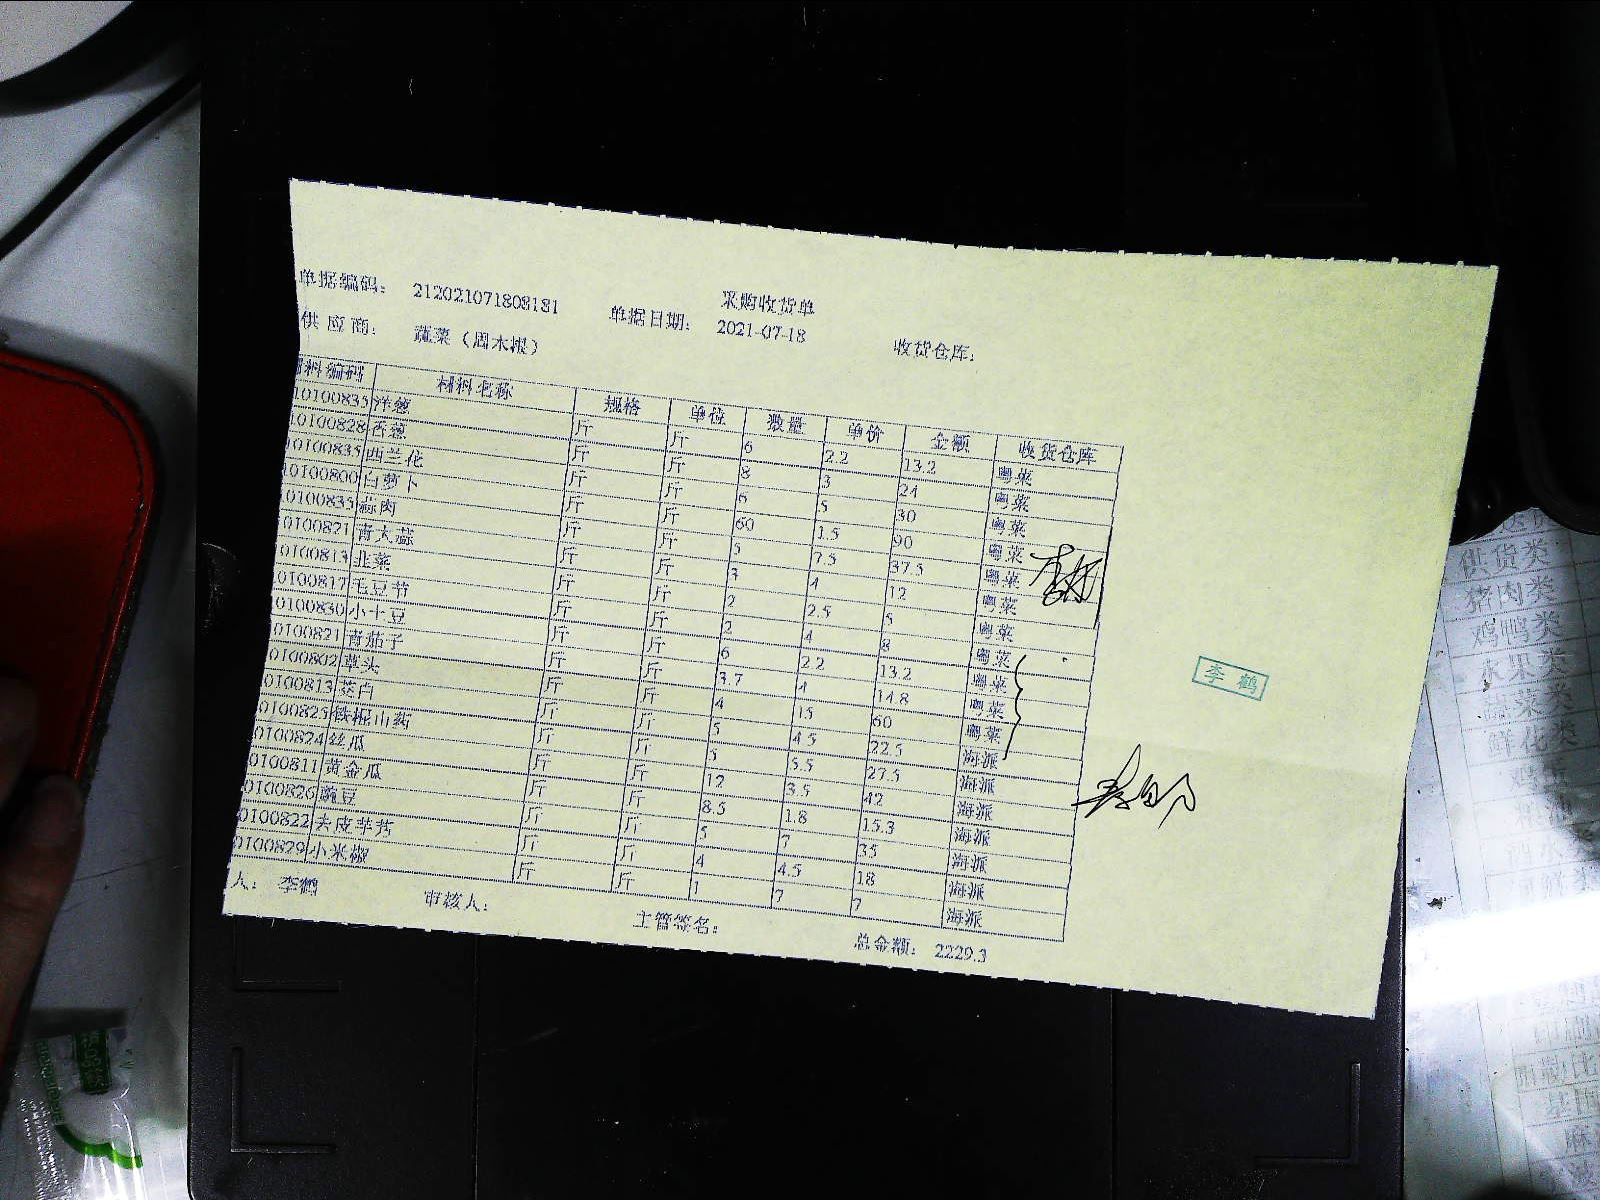 采购收货单
单据编码: 212021071808181 单据日期: 2021-07-18 收货仓库:
供应商: 蔬菜（周木根）
材料编码 材料名称 规格 单位 数量 单价 金额 收货仓库
10100835 洋葱 斤 斤 6 2.2 13.2 粤菜
10100828 香葱 斤 斤 8 3 24 粤菜
10100835 西兰花 斤 斤 6 5 30 粤菜
10100800 白萝卜 斤 斤 60 1.5 90 粤菜
0100835 蒜肉 斤 斤 5 7.5 37.5 粤菜
0100821 青大蒜 斤 斤 3 4 12 粤菜
0100813 韭菜 斤 斤 2 2.5 5 粤菜
0100817 毛豆节 斤 斤 2 4 8 粤菜
0100830 小土豆 斤 斤 6 2.2 13.2 粤菜
0100821 青茄子 斤 斤 3.7 4 14.8 粤菜
0100802 草头 斤 斤 4 15 60 粤菜
0100813 茭白 斤 斤 5 4.5 22.5 海派
0100825 铁棍山药 斤 斤 5 5.5 27.5 海派
0100824 丝瓜 斤 斤 12 3.5 42 海派
0100811 黄金瓜 斤 斤 8.5 1.8 15.3 海派
0100826 豌豆 斤 斤 5 7 35 海派
0100822 去皮芋艿 斤 斤 4 4.5 18 海派
0100829 小米椒 斤 斤 1 7 7 海派
人: 李鹤 审核人: 主管签名: 总金额: 2229.3
李鹤
供货类
猪肉类
鸡鸭类
水果类
蔬菜类
鲜花类